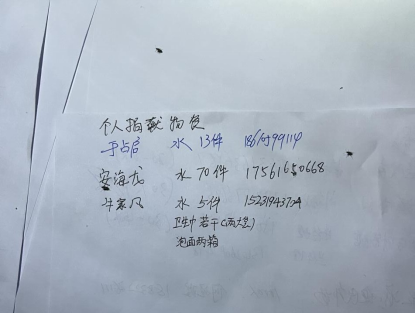 个人捐献物资
于占启 水 13件
安海龙 水 70件 17561650668
牛家风 水 5件 15231943704
卫生巾若干(两大包)
泡面两箱